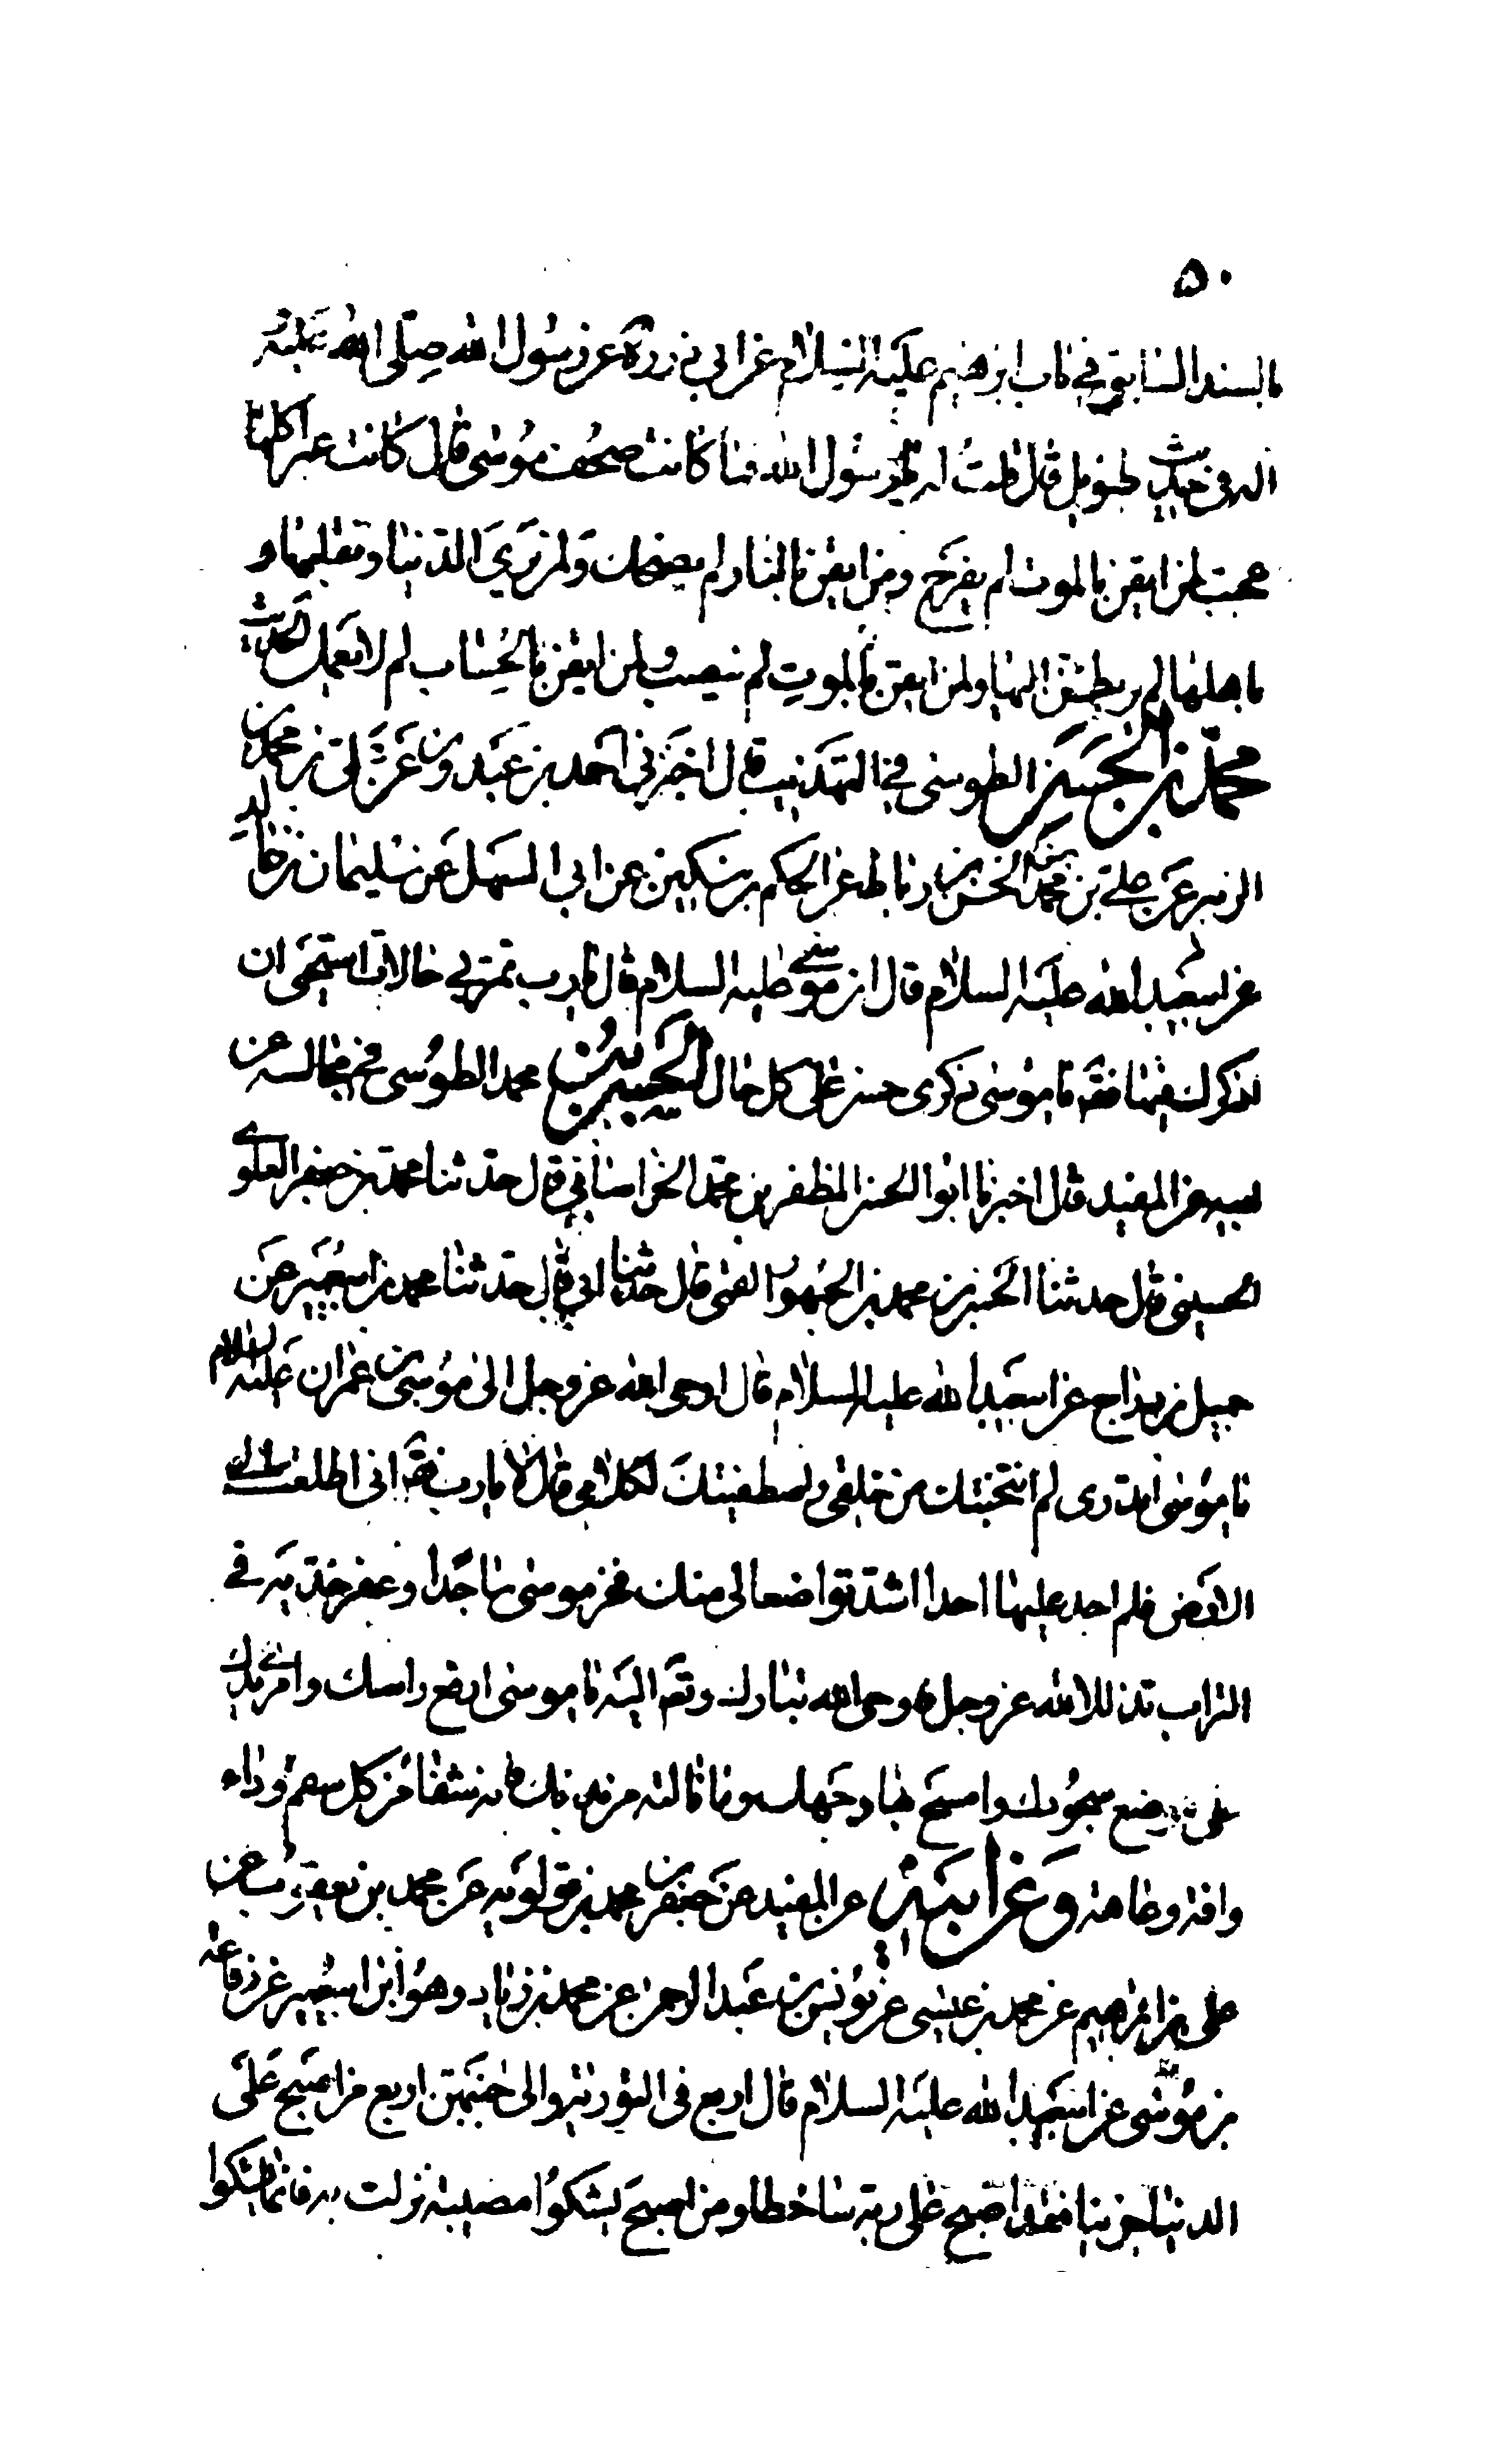 ٥٠
بالسند السابق في باب ابرهيم عليه السلام عن ابي ذر ره عن رسول الله صلى الله عليه
اله في حديث طويل قال قلت له يا رسول الله فما كانت صحف موسى قال كانت عبرا كلها
عجبت لمن ايقن بالموت لم يفرح ومن ايقن بالنار لم يضحك ولمن يرى الدنيا وتقلبها و
باهلها لم يطمئن اليها ولمن ايقن بالموت لم ينصب ولمن ايقن بالحساب لم لا يعمل الحديث
محمد بن الحسن الطوسي في التهذيب قال اخبرني احمد بن عبدون عن علي بن محمد بن
الزبير عن علي بن الحسن بن رباط عن الحكم بن مسكين عن ابي السهل عن سليمان بن خالد
عن ابيعبد الله عليه السلام قال ان موسى عليه السلام قال يا رب تمر بي حالات استحيى ان
اذكرك فيها فقه يا موسى ذكرى حسن على كل حال الحسن بن محمد الطوسى في مجالسه عن
ابيه عن المفيد قال اخبرنا ابو الحسن المظفر بن محمد الخراساني قال حدثنا محمد بن جعفر العلوي
الحسيني قال حدثنا الحسن بن محمد بن الجمهور القمى قال حدثنا ابي قال حدثنا محمد بن ابيعمير عن
جميل بن دراج عن ابيعبد الله عليه السلام قال اوحى الله عز وجل الى موسى بن عمران عليه السلام
يا موسى اتدرى لم انتجبتك من خلقى واصطفيتك لكلامي قال لا يا رب فقه انى اطلعت الى
الارض فلم اجد عليها احدا اشد تواضعا لى منك فخر موسى ساجدا وعفر خديه في
التراب تذللا لله عز وجل فاوحى الله تبارك وتعه اليه يا موسى ارفع راسك وامر يدك
على موضع سجودك وامسح بها وجهك وما نالته من بدنك فانه شفا من كل سقم وداء
وافة وعاهة وعن ابيه عن المفيد عن جعفر بن محمد بن قولويه عن محمد بن يعقوب عن
على بن ابرهيم عن محمد بن عيسى عن يونس بن عبد الرحمن عن محمد بن زياد وهو ابن ابيعمير عن رفاعه
بن موسى عن ابيعبد الله عليه السلام قال اربع فى التورية والى جنبهن اربع من اصبح على
الدنيا حزينا فقد اصبح على ربه ساخطا ومن اصبح يشكو مصيبة نزلت به فانما يشكوا